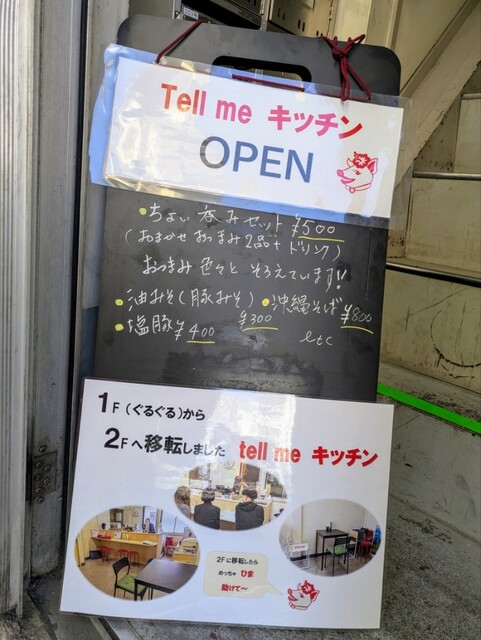 Tell me キッチン
OPEN
・ちょい呑みセット ¥500
(おまかせおつまみ2品+ドリンク)
おつまみ色々とそろえています!!
・油みそ(豚みそ) ¥300
・沖縄そば ¥800
・塩豚 ¥400
etc
1F(ぐるぐる)から
2Fへ移転しました tell me キッチン
2Fに移転したら
めっちゃ ひま
助けて〜